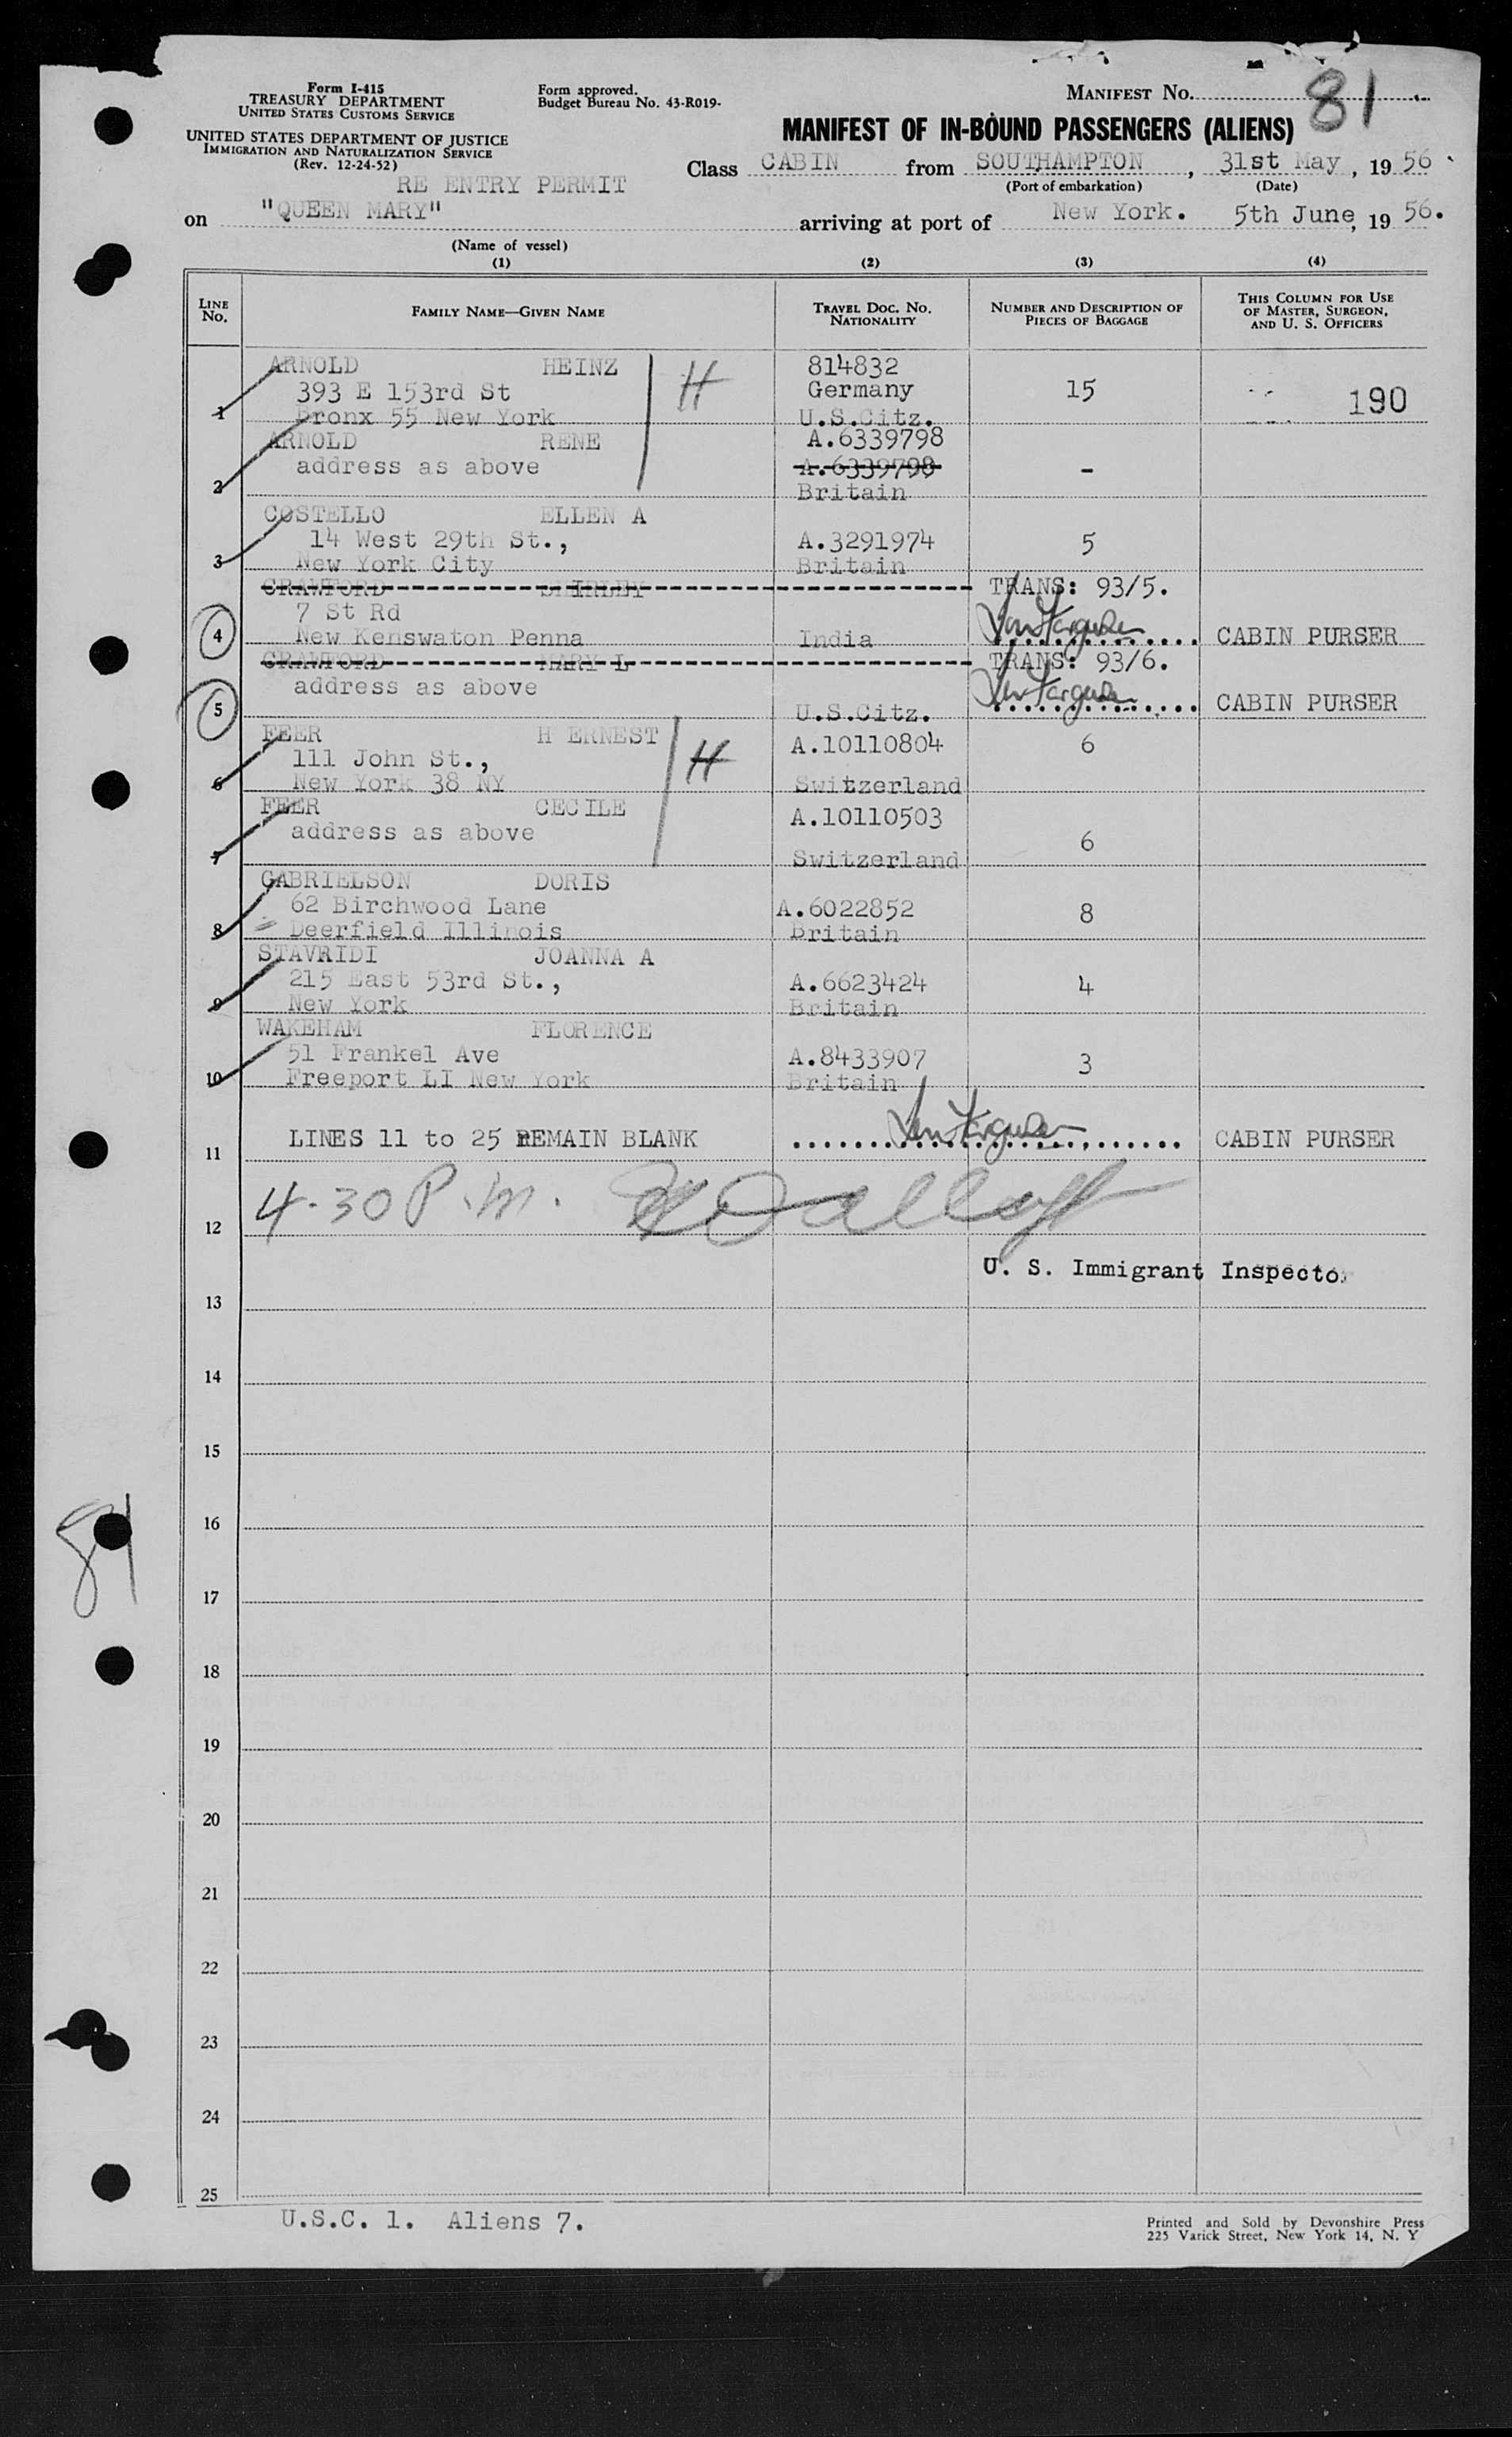 Form I-415
TREASURY DEPARTMENT
UNITED STATES CUSTOMS SERVICE
UNITED STATES DEPARTMENT OF JUSTICE
IMMIGRATION AND NATURALIZATION SERVICE
(Rev. 12-24-52)
Form approved.
Budget Bureau No. 43-R019-
MANIFEST No. 81
MANIFEST OF IN-BOUND PASSENGERS (ALIENS)
Class CABIN from SOUTHAMPTON, 31st May, 1956.
(Port of embarkation) (Date)
RE ENTRY PERMIT
on "QUEEN MARY" arriving at port of New York. 5th June, 1956.
(Name of vessel)
(1) (2) (3) (4)
LINE No. FAMILY NAME—GIVEN NAME TRAVEL DOC. No. NATIONALITY NUMBER AND DESCRIPTION OF PIECES OF BAGGAGE THIS COLUMN FOR USE OF MASTER, SURGEON, AND U. S. OFFICERS
ARNOLD HEINZ H 814832
393 E 153rd St Germany 15 190
1 Bronx 55 New York U.S.Citz.
ARNOLD RENE A.6339798
address as above A.6339798 -
2 Britain
COSTELLO ELLEN A
14 West 29th St., A.3291974 5
3 New York City Britain
CRAWFORD SHIRLEY TRANS: 93/5.
7 St Rd
4 New Kenswaton Penna India CABIN PURSER
CRAWFORD MARY L TRANS: 93/6.
address as above
5 U.S.Citz. CABIN PURSER
FEER H ERNEST H A.10110804 6
111 John St.,
6 New York 38 NY Switzerland
FEER CECILE A.10110503
address as above 6
7 Switzerland
GABRIELSON DORIS
62 Birchwood Lane A.6022852 8
8 Deerfield Illinois Britain
STAVRIDI JOANNA A
215 East 53rd St., A.6623424 4
9 New York Britain
WAKEHAM FLORENCE
51 Frankel Ave A.8433907 3
10 Freeport LI New York Britain
11 LINES 11 to 25 REMAIN BLANK CABIN PURSER
12 4.30 P.m.
U. S. Immigrant Inspecto
13
14
15
16
81
17
18
19
20
21
22
23
24
25
U.S.C. 1. Aliens 7.
Printed and Sold by Devonshire Press
225 Varick Street, New York 14, N. Y